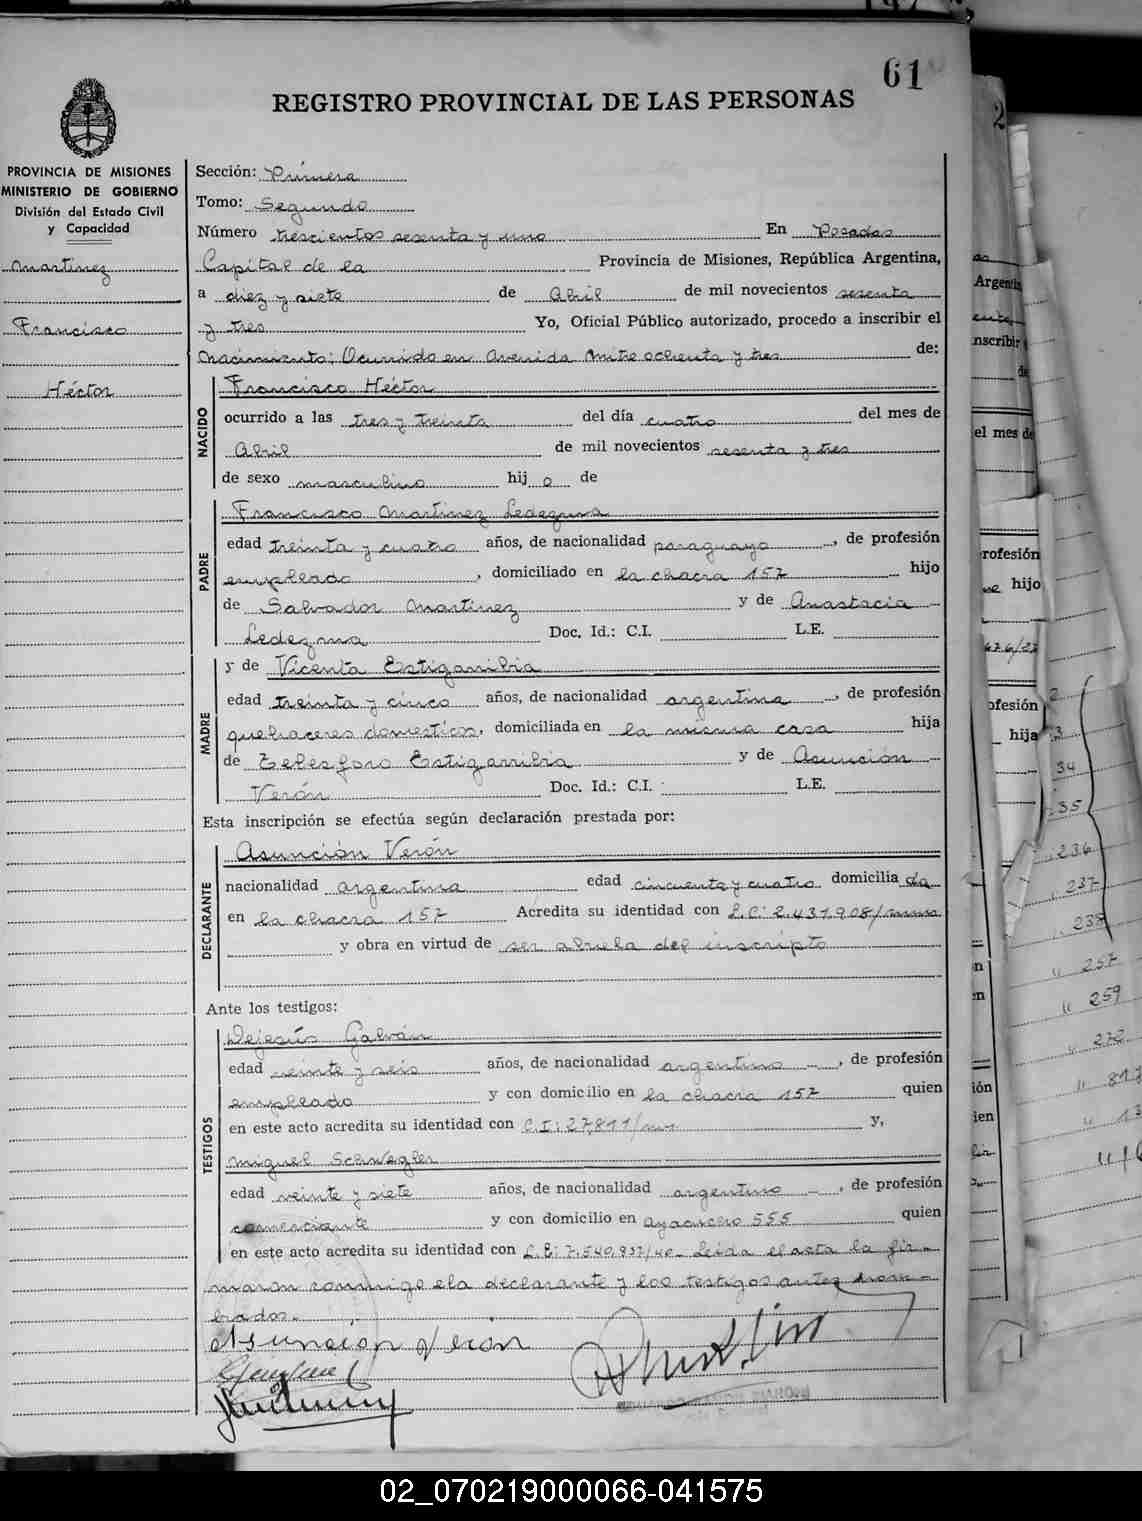 61
REGISTRO PROVINCIAL DE LAS PERSONAS
PROVINCIA DE MISIONES
MINISTERIO DE GOBIERNO
División del Estado Civil
y Capacidad
Martinez
Francisco
Héctor
Sección: Primera
Tomo: Segundo
Número trescientos sesenta y uno En Posadas
Capital de la Provincia de Misiones, República Argentina,
a diez y siete de Abril de mil novecientos sesenta
y tres Yo, Oficial Público autorizado, procedo a inscribir el
nacimiento: Ocurrido en Avenida Mitre ochenta y tres de:
NACIDO
Francisco Héctor
ocurrido a las tres y treinta del día cuatro del mes de
Abril de mil novecientos sesenta y tres
de sexo masculino hij o de
PADRE
Francisco Martinez Ledezma
edad treinta y cuatro años, de nacionalidad paraguayo, de profesión
empleado, domiciliado en la chacra 157 hijo
de Salvador Martinez y de Anastacia
Ledezma Doc. Id.: C.I. L.E.
MADRE
y de Vicenta Estigarribia
edad treinta y cinco años, de nacionalidad argentina, de profesión
quehaceres domesticos, domiciliada en la misma casa hija
de Telesforo Estigarribia y de Asunción
Verón Doc. Id.: C.I. L.E.
Esta inscripción se efectúa según declaración prestada por:
DECLARANTE
Asunción Verón
nacionalidad argentina edad cincuenta y cuatro domicilia da
en la chacra 157 Acredita su identidad con L.C: 2.431.908/
y obra en virtud de ser abuela del inscripto
Ante los testigos:
TESTIGOS
Dejesús Galván
edad veinte y seis años, de nacionalidad argentino, de profesión
empleado y con domicilio en la chacra 157 quien
en este acto acredita su identidad con C.I: 27,811/ y,
Miguel Schwagler
edad veinte y siete años, de nacionalidad argentino, de profesión
comerciante y con domicilio en ayacucho 555 quien
en este acto acredita su identidad con L.E: 7.540.937/40- Leida el acta la fir-
maron conmigo ela declarante y los testigos antes nom-
brados.
Asunción Verón
02_070219000066-041575